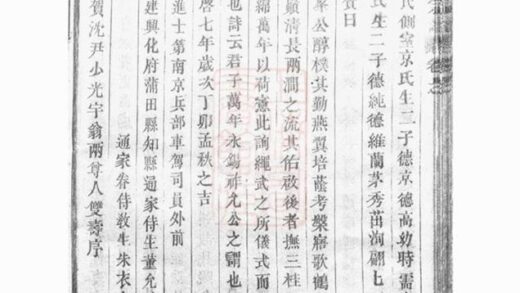 氏側室京氏生二子德京德高幼時需
氏生二子德純德維蘭茅秀茁洵翩七
贊曰
峯公醇樸其勤燕翼培蔭考槃寤歌鶴
顛清長兩澗之流其佑啟後者撫三桂
綿萬年以荷憲此詢繩武之所儀式而
也詩云君子萬年永錫祚允公之謂也
啓七年歲次丁卯孟秋之吉
進士第南京兵部車駕司員外前
建興化府莆田縣知縣通家侍生董允
通家眷侍教生朱衣
賀沈尹少光宇翁兩尊人雙壽序